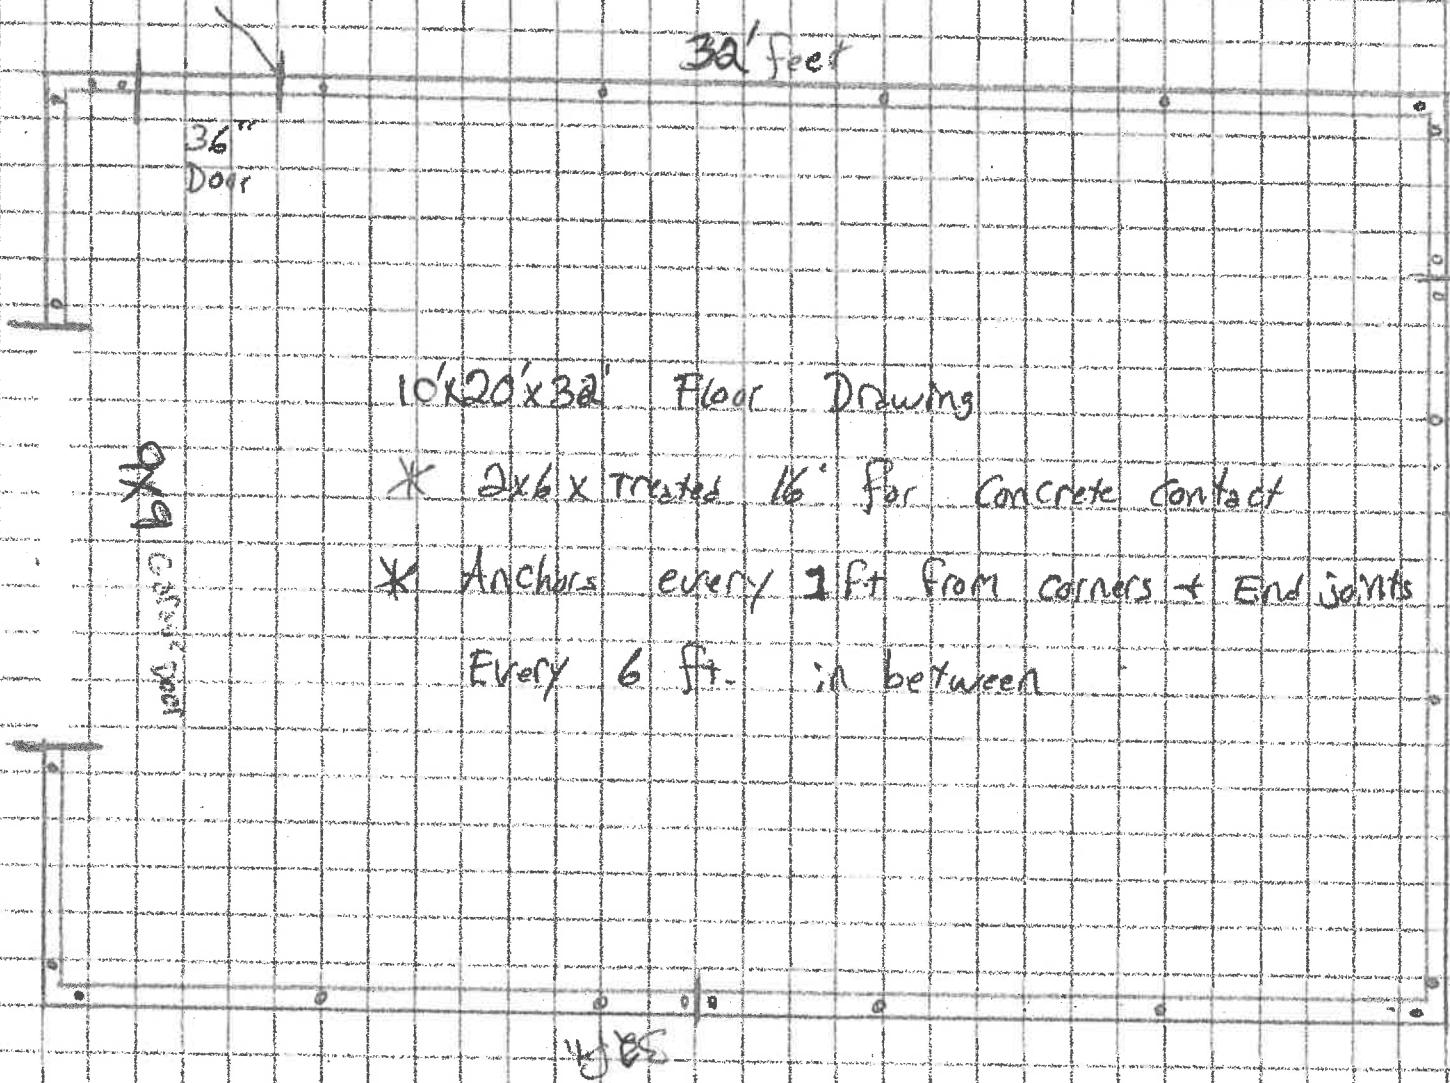 32' feet
36"
Door
10'x20'x32' Floor Drawing
* 2x6x Treated 16' for Concrete contact
* Anchors every 1 ft from corners + End joints
Every 6 ft. in between
9x9
Door
32 ft